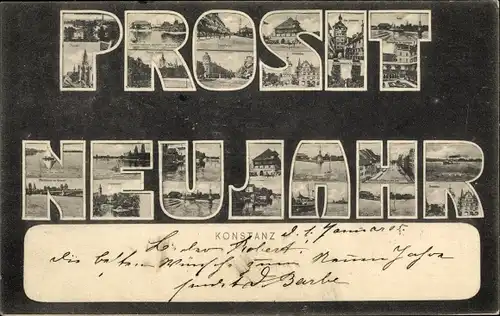 PROSIT
NEUJAHR
KONSTANZ d. 1. Januar 05
L. der Robert!
die besten Wünsche zum Neuen Jahre
sendet D. Barbe